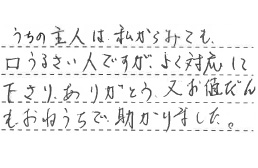 うちの主人は、私からみても、
口うるさい人ですが、よく対応して
下さり、ありがとう、又お値だん
もおねうちで、助かりました。